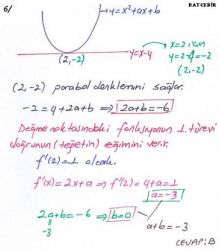 BATCEBİR
6/
y=x²+ax+b
y=x-4
(2,-2)
x=2 için
y=2-4=-2
(2,-2)
(2,-2) parabol denklemini sağlar.
-2=4+2a+b ⇒ 2a+b=-6
Değme noktasındaki fonksiyonun 1. türevi
doğrunun (teğetin) eğimini verir.
f'(2)=1 olacak.
f'(x)=2x+a ⇒ f'(2)=4+a=1
a=-3
2a+b=-6 ⇒ b=0
-3
a+b=-3
CEVAP: B